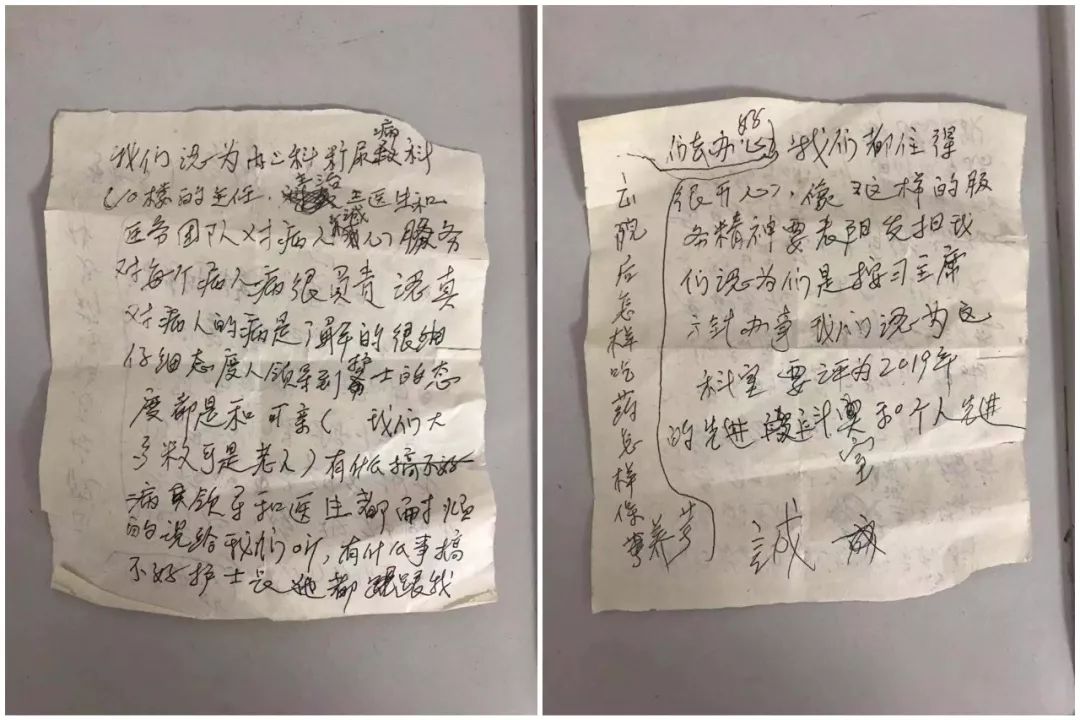 我们认为内二科肝尿病科
10楼的主任,主治医生和
医务团队对病人诚心服务
对每个病人病很负责认真
对病人的病是了解的很细
仔细态度人领导到护士的态
度都是和可亲(我们大
多数可是老人)有什么搞不好
病其领导和医生都耐烦
的说给我们听,有什么事搞
不好护士长她都跟我
们去办好,我们都住得
很开心,像这样的服
务精神要表阳发扬我
们认为们是按习主席
方针办事我们认为这
科室要评为2019年
的先进科室和个人先进
出院后怎样吃药怎样保养等
诚